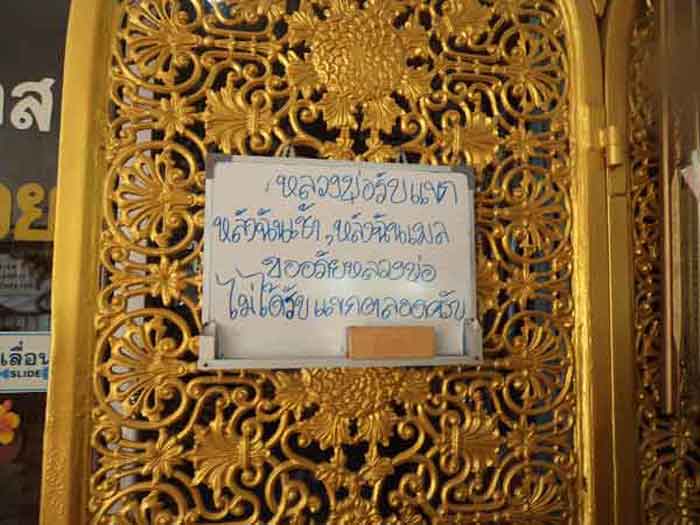 หลวงพ่อรับแขก
หลังฉันเช้า, หลังฉันเพล
ขออภัยหลวงพ่อ
ไม่ได้รับแขกตลอดครับ
เลื่อน
SLIDE